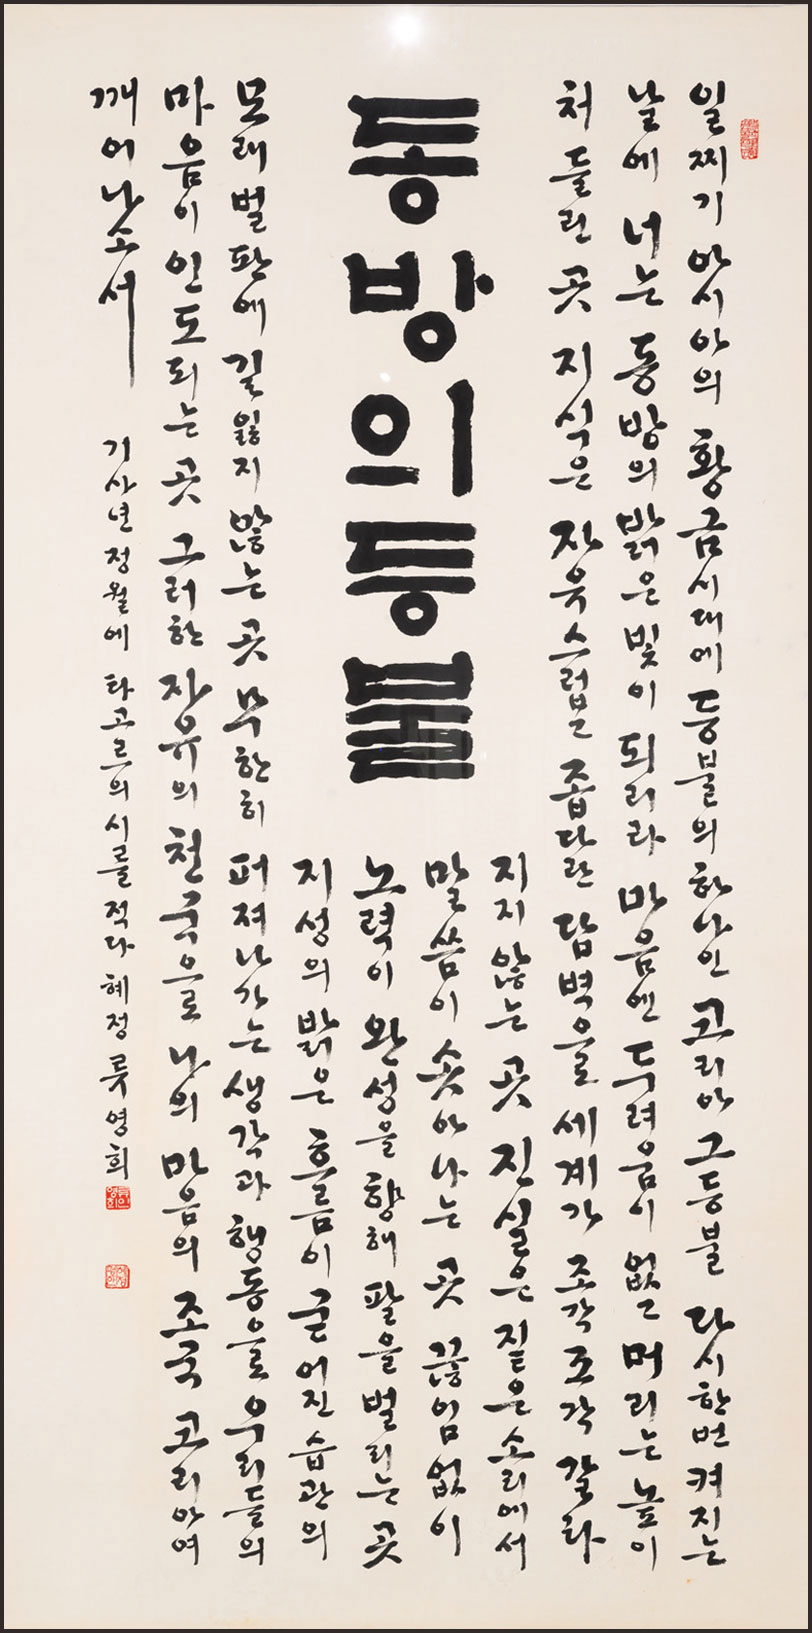 동방의등불
일찌기 아시아의 황금시대에 등불의 하나인 코리아 그 등불 다시 한번 켜지는
날에 너는 동방의 밝은 빛이 되리라 마음엔 두려움이 없고 머리는 높이
처들린 곳 지식은 자유스럽고 좁다란 담벽으로 세계가 조각조각 갈라
지지 않는 곳 진실은 짙은 소리에서
말씀이 솟아나는 곳 끊임없이
노력이 완성을 향해 팔을 벌리는 곳
지성의 밝은 흐름이 굳어진 습관의
모래벌판에 길 잃지 않는 곳 무한히 퍼져 나가는 생각과 행동으로 우리들의
마음이 인도되는 곳 그러한 자유의 천국으로 나의 마음의 조국 코리아여
깨어나소서
기사년 정월에 타고르의 시를 적다 혜정 류영희